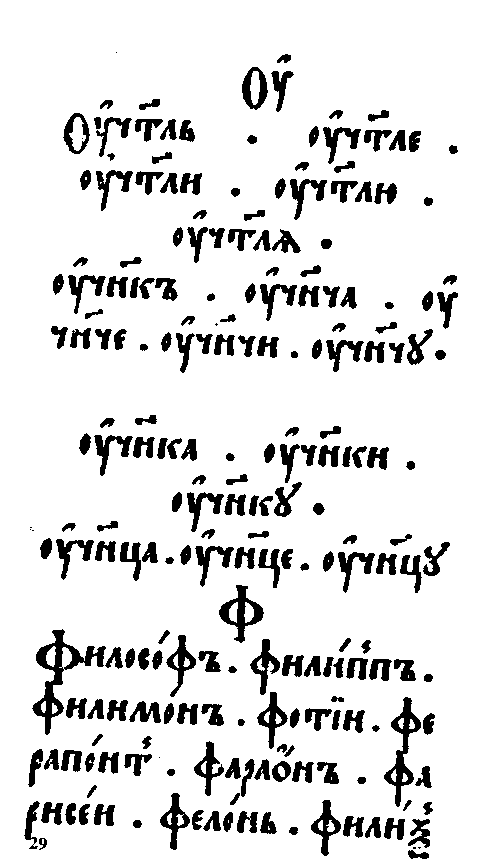 Оу҆
Оу҆чт҃ль . оу҆чт҃ле .
оу҆чт҃ли . оу҆чт҃лю .
оу҆чт҃лѧ .
оу҆чн҃къ . оу҆чн҃ча . оу҆
чн҃че . оу҆чн҃чи . оу҆чн҃чꙋ .
оу҆чн҃ка . оу҆чн҃ки .
оу҆чн҃кꙋ .
оу҆чн҃ца . оу҆чн҃це . оу҆чн҃цꙋ
Ф
Филосо́фъ . фили́ппъ .
Филимо́нъ . фотїн . фе
рапо́нт . фараѡ́нъ . фа
рисе́и . фело́нь .
29